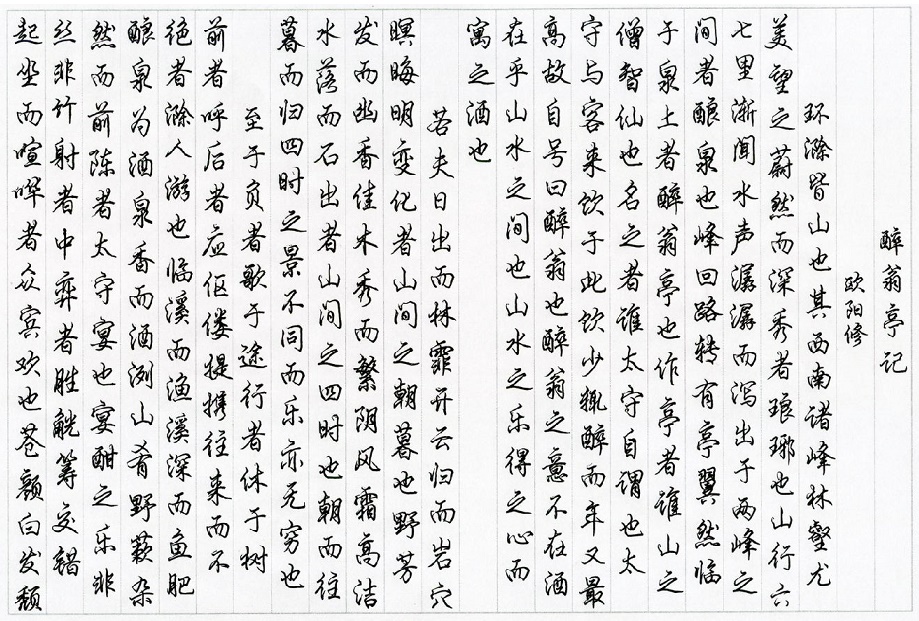 醉翁亭记
欧阳修
环滁皆山也其西南诸峰林壑尤
美望之蔚然而深秀者琅琊也山行六
七里渐闻水声潺潺而泻出于两峰之
间者酿泉也峰回路转有亭翼然临
于泉上者醉翁亭也作亭者谁山之
僧智仙也名之者谁太守自谓也太
守与客来饮于此饮少辄醉而年又最
高故自号曰醉翁也醉翁之意不在酒
在乎山水之间也山水之乐得之心而
寓之酒也
若夫日出而林霏开云归而岩穴
暝晦明变化者山间之朝暮也野芳
发而幽香佳木秀而繁阴风霜高洁
水落而石出者山间之四时也朝而往
暮而归四时之景不同而乐亦无穷也
至于负者歌于途行者休于树
前者呼后者应伛偻提携往来而不
绝者滁人游也临溪而渔溪深而鱼肥
酿泉为酒泉香而酒洌山肴野蔌杂
然而前陈者太守宴也宴酣之乐非
丝非竹射者中弈者胜觥筹交错
起坐而喧哗者众宾欢也苍颜白发颓